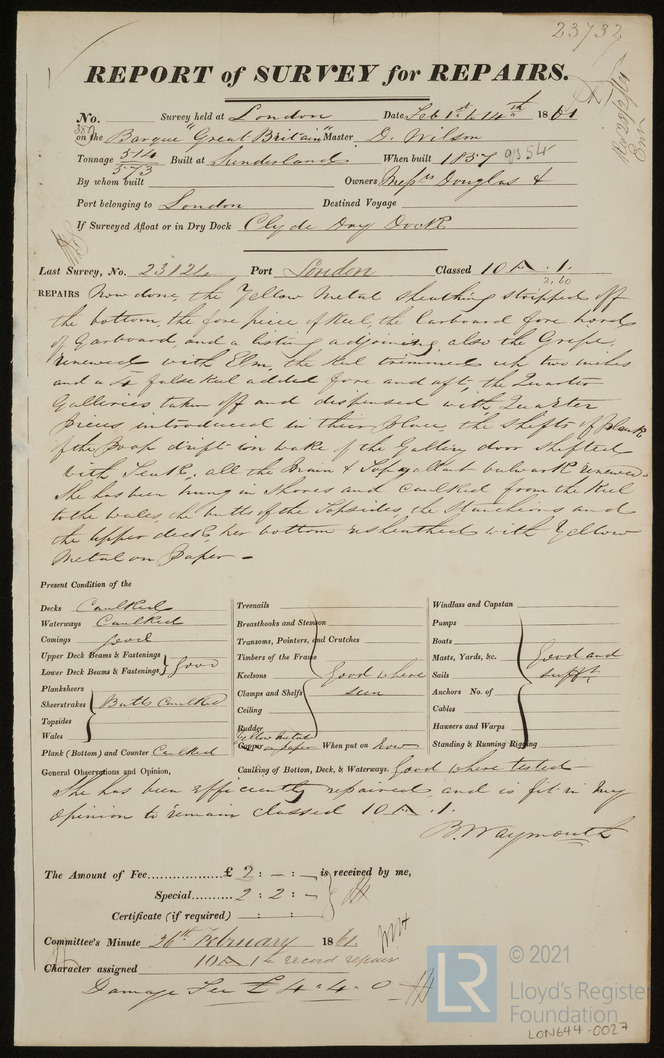 23732
REPORT of SURVEY for REPAIRS.
No. Survey held at London Date, Feb 1st to 14th 1861
380 on the Barque "Great Britain" Master D. Wilson
Tonnage 514/573 Built at Sunderland When built 1857 9854
By whom built Owners Messrs Douglas &
Port belonging to London Destined Voyage
If Surveyed Afloat or in Dry Dock Clyde Dry Dock
Last Survey, No. 23121 Port London Classed 10 A . 1.
3,60
REPAIRS Now done, the Yellow Metal sheathing stripped off
the bottom, the fore piece of Keel, the Larboard fore hoods
of Garboard, and a listing adjoining, also the Gripe,
renewed with Elm, the keel trimmed up two inches
and a false keel added fore and aft, the Quarter
Galleries taken off and dispensed with, Quarter
pieces introduced in their place, the shifts of plank
of the Poop drift in wake of the Gallery door shifted
with Teak, all the Main & Topgallant bulwark renewed.
She has been hung in Shores and Caulked from the Keel
to the wales, the butts of the Topsides, the Stanchions and
the upper deck, her bottom resheathed with Yellow
Metal on Paper -
Present Condition of the
Decks Caulked
Waterways Caulked
Comings good
Upper Deck Beams & Fastenings
Lower Deck Beams & Fastenings } Good
Planksheers
Sheerstrakes Butts Caulked
Topsides
Wales
Plank (Bottom) and Counter Caulked
Treenails
Breasthooks and Stemson
Transoms, Pointers, and Crutches
Timbers of the Frame
Keelsons Good where
Clamps and Shelfs seen
Ceiling
Rudder
Yellow Metal
Copper on paper When put on Now
Windlass and Capstan
Pumps
Boats
Masts, Yards, &c. Good and
Sails sufft
Anchors No. of
Cables
Hawsers and Warps
Standing & Running Rigging
General Observations and Opinion, Caulking of Bottom, Deck, & Waterways. Good where tested
She has been efficiently repaired and is fit in my
opinion to remain classed 10 A . 1.
B. Waymouth
The Amount of Fee £ 2 : - : - is received by me,
Special 2 : 2 : -
Certificate (if required) : :
Committee's Minute 26th February 1861.
Character assigned 10 A 1 & record repairs
Damage Fee £ 4 . 4 . 0
LR
© 2021
Lloyd's Register
Foundation
LON644-0027